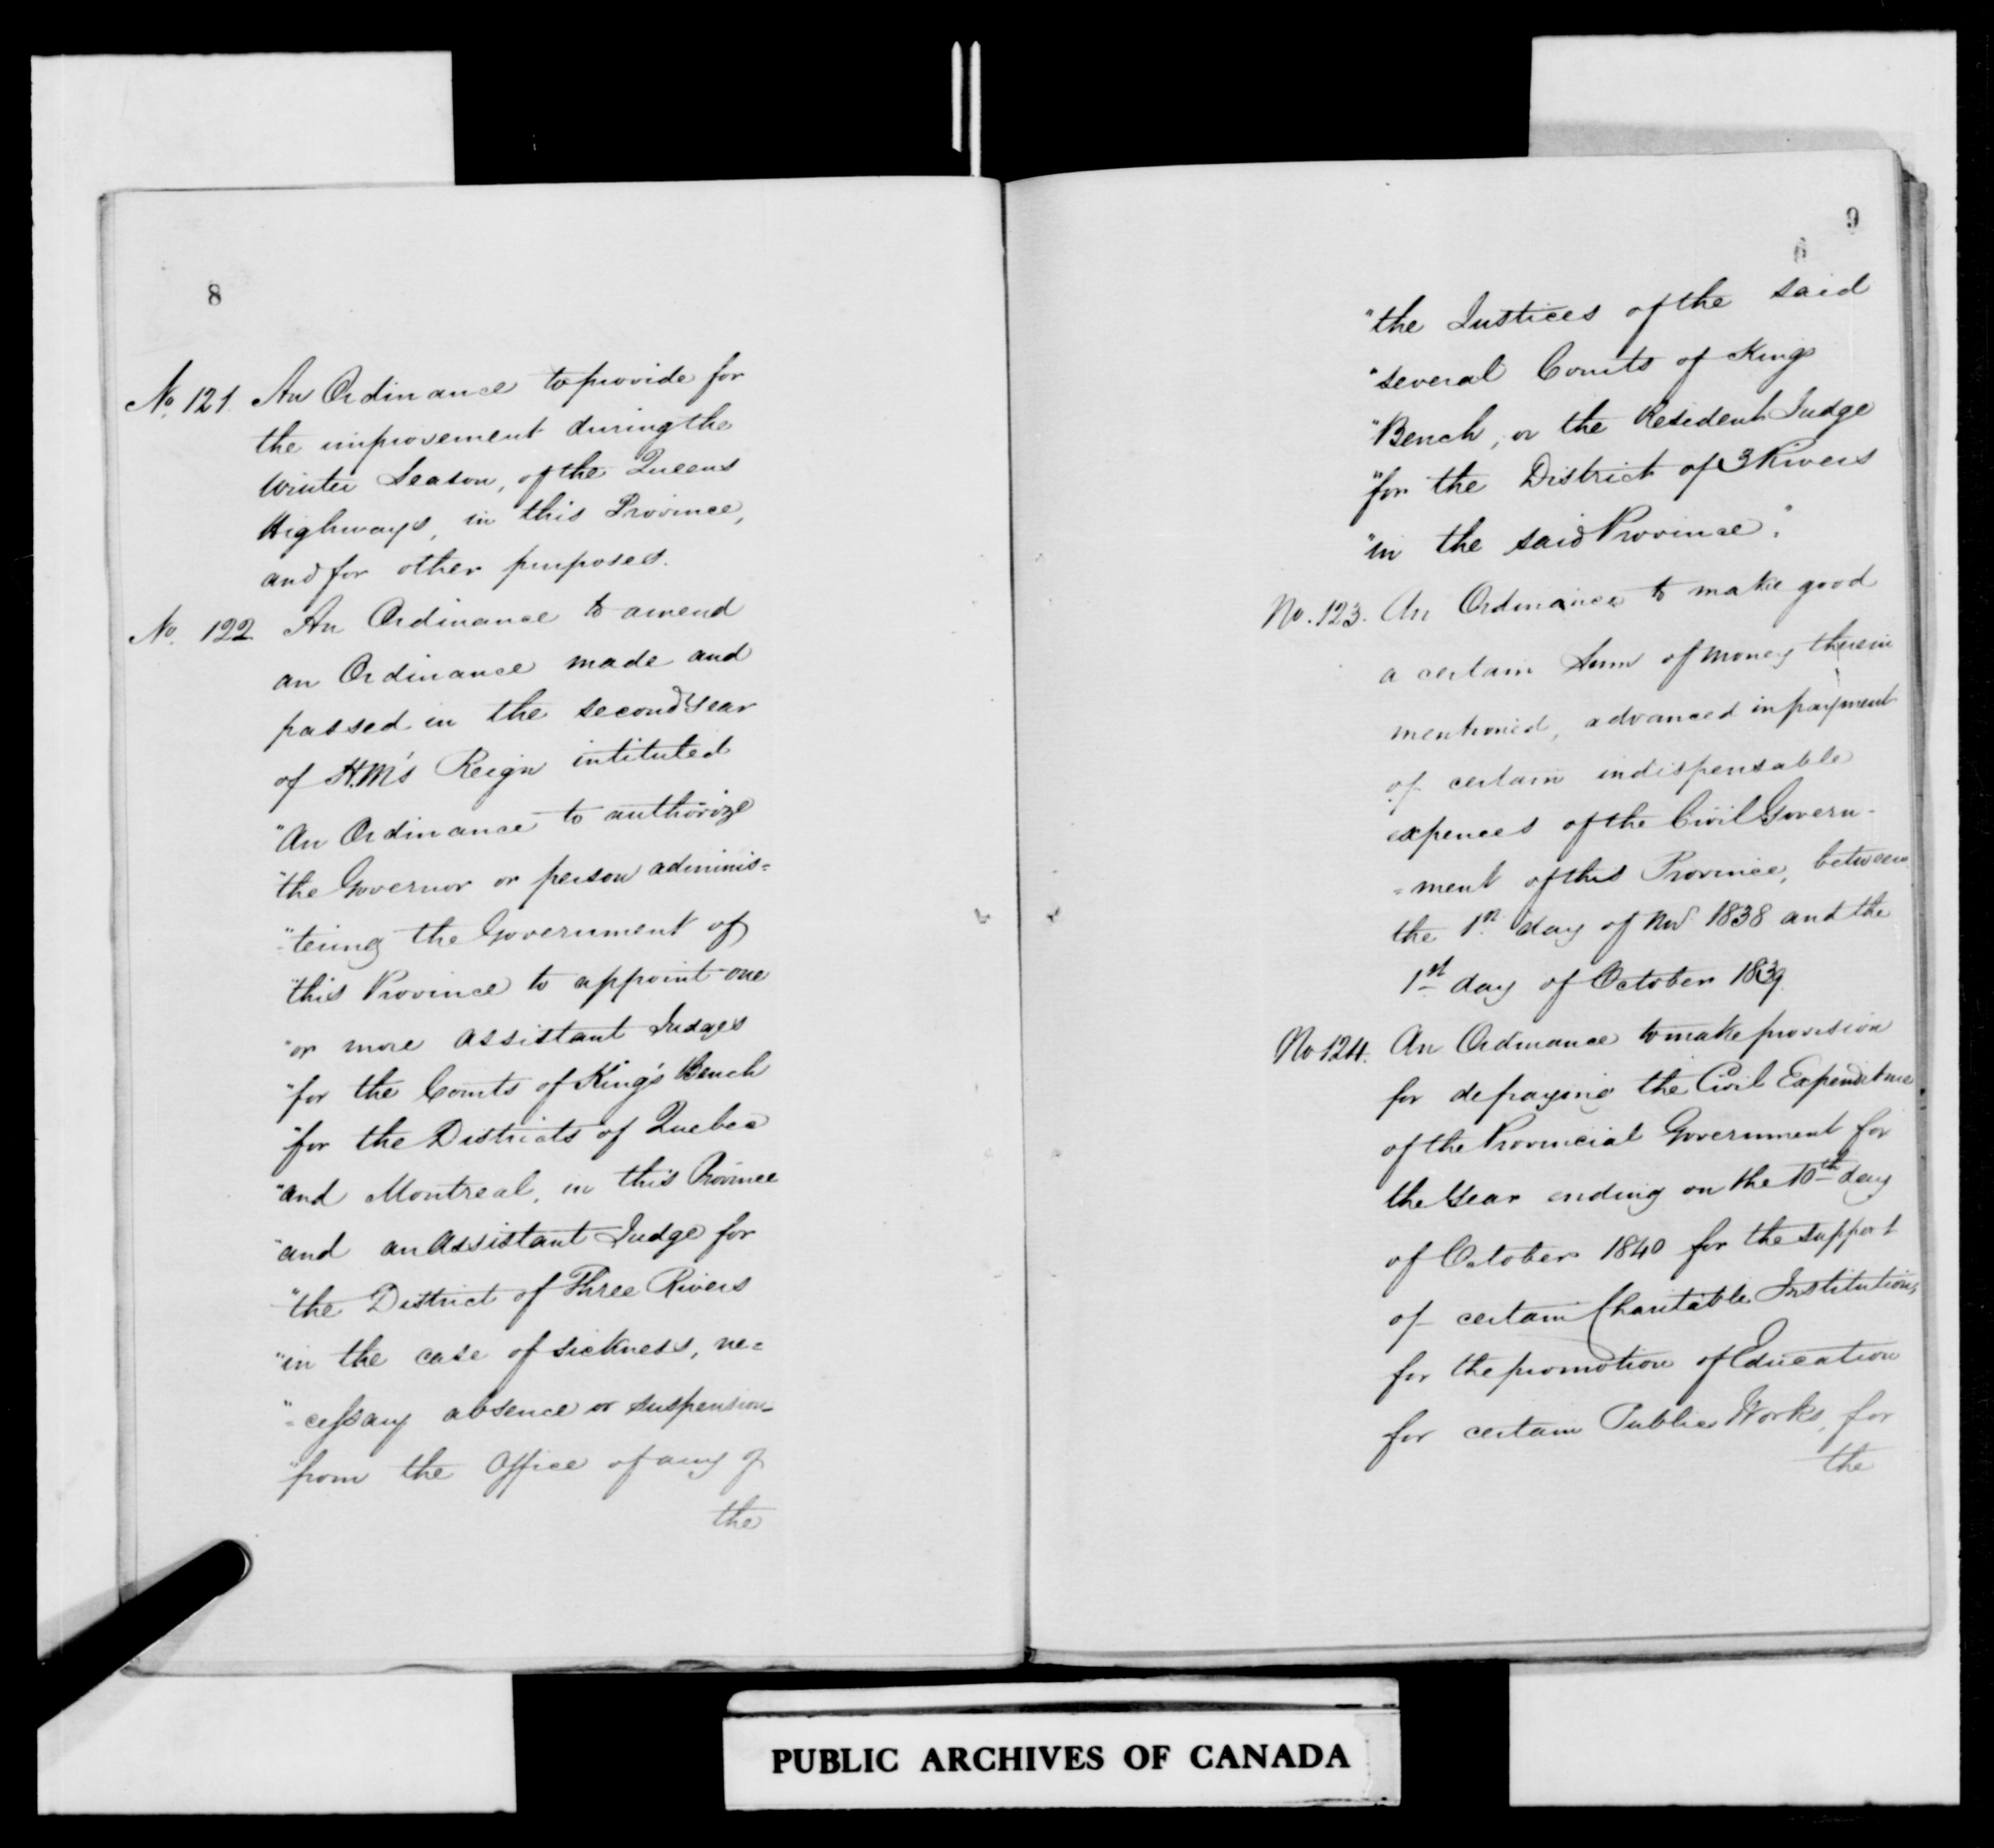 8
No. 121. An Ordinance to provide for
the improvement during the
Winter Season, of the Queens
Highways, in this Province,
and for other purposes.
No. 122 An Ordinance to amend
an Ordinance made and
passed in the second Year
of H.M's Reign intituled
"An Ordinance to authorize
"the Governor or person adminis=
"tering the Government of
"this Province to appoint one
"or more assistant Judges
"for the Courts of King's Bench
"for the Districts of Quebec
"and Montreal, in this Province
"and an Assistant Judge for
"the District of Three Rivers
"in the case of sickness, ne=
"=cessary absence or suspension
"from the Office of any of
the
9
"the Justices of the said
"several Courts of Kings
"Bench, or the Resident Judge
"for the District of 3 Rivers
"in the said Province."
No. 123. An Ordinance to make good
a certain Sum of money therein
mentioned, advanced in payment
of certain indispensable
expences of the Civil Govern-
=ment of this Province, between
the 1st day of Nov 1838 and the
1st day of October 1839.
No 124. An Ordinance to make provision
for defraying the Civil Expenditure
of the Provincial Government for
the Year ending on the 10th day
of October 1840 for the support
of certain Charitable Institutions,
for the promotion of Education
for certain Public Works, for
the
PUBLIC ARCHIVES OF CANADA